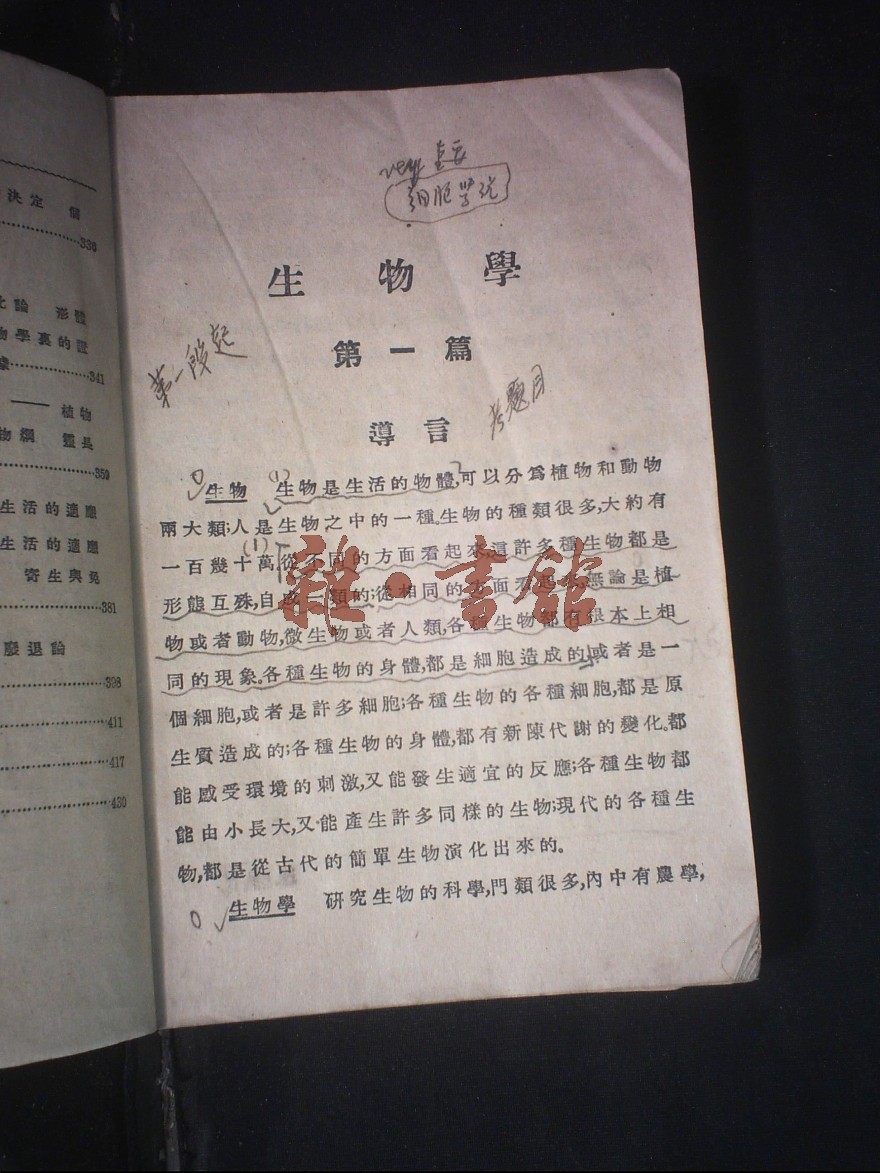 決定 個
338
論 形體
物學裏的證
341
—— 植物
物綱 靈長
359
生活的適應
生活的適應
寄生與免
381
廢退論
398
411
417
430
細胞學說
生物學
第一篇
第一段起
考題目
導言
生物 (1)生物是生活的物體,可以分爲植物和動物
兩大類;人是生物之中的一種.生物的種類很多,大約有
一百幾十萬.(1)從不同的方面看起來,這許多種生物都是
形態互殊,自成一類的;從相同的方面看起來,無論是植
物或者動物,微生物或者人類,各種生物都有根本上相
同的現象.各種生物的身體,都是細胞造成的,或者是一
個細胞,或者是許多細胞;各種生物的各種細胞,都是原
生質造成的;各種生物的身體,都有新陳代謝的變化.都
能感受環境的刺激,又能發生適宜的反應;各種生物都
能由小長大,又能產生許多同樣的生物;現代的各種生
物,都是從古代的簡單生物演化出來的。
生物學 研究生物的科學,門類很多,內中有農學,
雜·書館